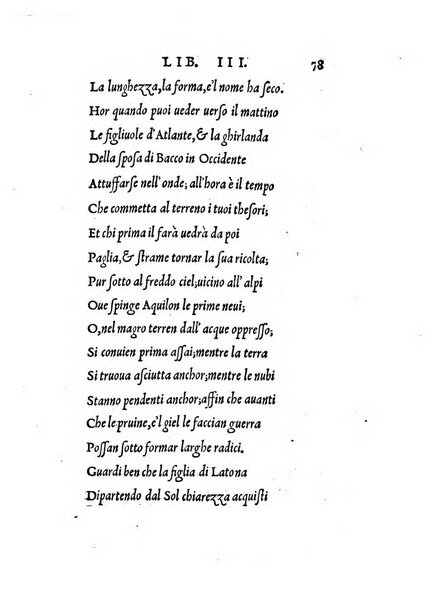 LIB. III. 78
La lunghezza, la forma, e'l nome ha seco.
Hor quando puoi ueder uerso il mattino
Le figliuole d'Atlante, & la ghirlanda
Della sposa di Bacco in Occidente
Attuffarse nell' onde; all'hora è il tempo
Che commetta al terreno i tuoi thesori;
Et chi prima il farà uedrà da poi
Paglia, & strame tornar la sua ricolta;
Pur sotto al freddo ciel; uicino all' alpi
Oue spinge Aquilon le prime neui;
O, nel magro terren dall' acque oppresso;
Si conuien prima assai; mentre la terra
Si truoua asciutta anchor; mentre le nubi
Stanno pendenti anchor; affin che auanti
Che le pruine, e'l giel le faccian guerra
Possan sotto formar larghe radici.
Guardi ben che la figlia di Latona
Dipartendo dal Sol chiarezza acquisti